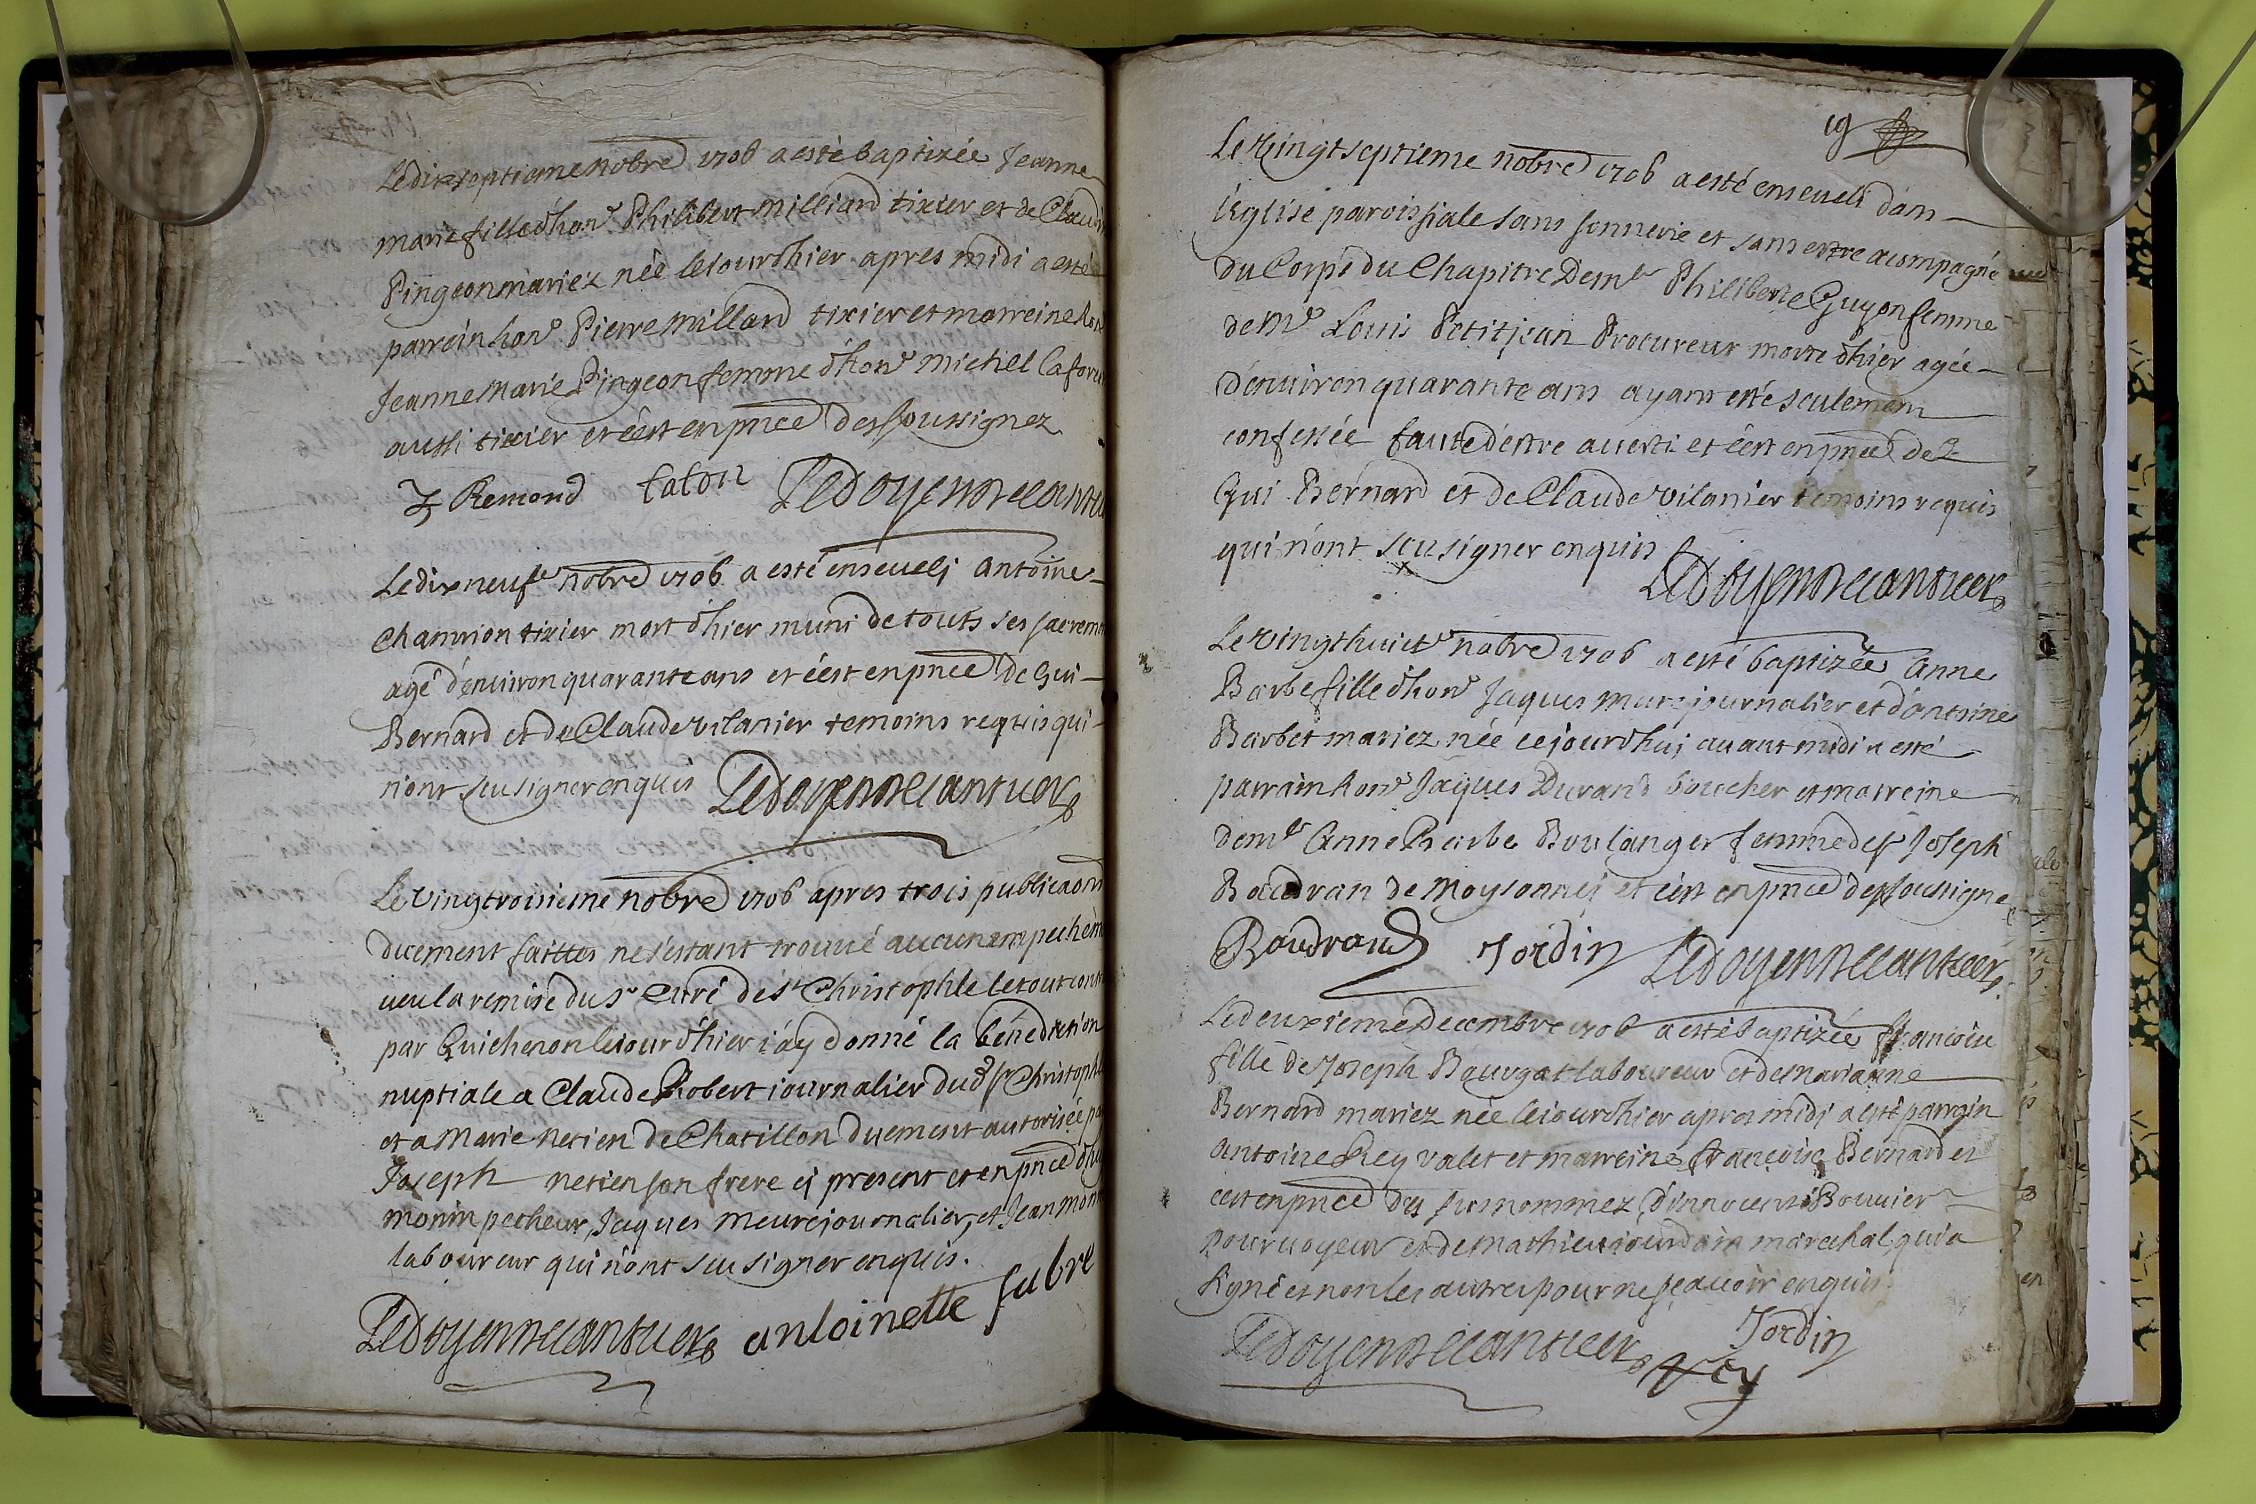 Le dixseptieme nobre 1706 a esté baptizée Jeanne
marie fille d'hon.e Philibert Milliard tixier et de Claud
Pingeon mariez née le jour d'hier apres midi a esté
parrain hon.e Pierre Millard tixier et marreine hon
Jeanne Marie Pingeon femme d'hon.e michel Lafore
aussi tixier et c'est en pnce des soussignez
Remond Caton Ledoyen
Le dixneufe nobre 1706 a esté enseveli Antoine
Chamrion tixier mort d'hier muni de touts ses sacrem
agé d'environ quarante ans et c'est en pnce de Gui
Bernard et de Claude vilanier temoins requis qui
n'ont seu signer enquis Ledoyen
Le vingtroisieme nobre 1706 apres trois publicaons
duement faittes ne s'estant trouvé aucun empechem
veu la remise du Sr Curé de St Christophle le tout cont
par Guichenon le jour d'hier j'ay donné la benediction
nuptiale a Claude Robert journalier dud St Christoph
et a Marie Netien de Chatillon duement autorisée p
Joseph Netien son frere cy present et en pnce d'h
monin pecheur, Jaques Meure journalier, et Jean Mon
laboureur qui n'ont seu signer enquis.
Ledoyen antoinette fabre
19
Le vingtseptieme nobre 1706 a esté enseveli dans
l'Eglise paroissiale sans sonnerie et sans estre acompagné
du Corps du Chapitre Demle Philiberte Guyon femme
de Me Louis Petitjean Procureur morte d'hier agée
d'environ quarante ans ayant esté seulement
confessée faute d'estre averti et c'est en pnce de
Gui Bernard et de Claude vilanier temoins requis
qui n'ont seu signer enquis
Ledoyen
Le vingthuite nobre 1706 a esté baptizée Anne
Barbe fille d'hon.e Jaques Mure journalier et d'Antoine
Barbet mariez née cejourd'hui avant midi a esté
parrain hon.e Jaques Durand boucher et marreine
demle Anne Barbe Boulanger femme de sr Joseph
Baudran de Moysonnei et c'est en pnce des soussigne
Baudrand Jordin Ledoyen
Le deuxieme Decembre 1706 a esté baptizée françoise
fille de Joseph Baurgat laboureur et de Marianne
Bernard mariez née le jour d'hier apres midi a esté parrain
Antoine Rey valet et marreine françoise Bernard et
c'est en pnce des susnommez, d'Innocent Bouvier
pourvoyeur et de Mathieu jourdain marechal qui a
signé et non les autres pour ne sçavoir enquis
Ledoyen Rey Jordin